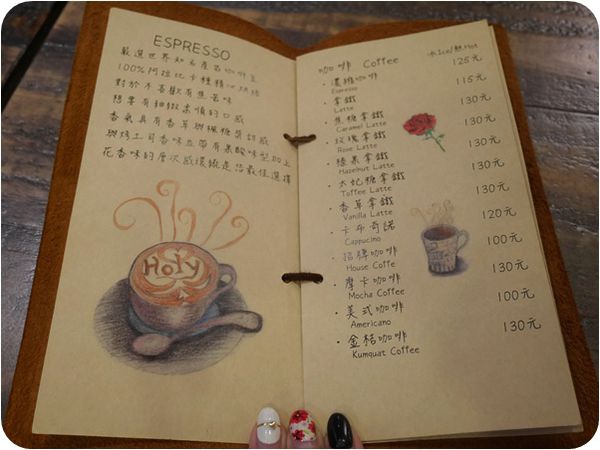 ESPRESSO
嚴選世界知名產區咖啡豆
100%阿拉比卡種精心烘焙
對於不喜歡有焦苦味
想要有細緻柔順的口感
香氣具有香草與楓糖漿甜感
與烤土司香味並帶有果酸味型加上
花香味的層次感還鐵是您最佳選擇
Holy
咖啡 Coffee 冰Ice/熱Hot
·濃縮咖啡 125元
Espresso
·拿鐵 115元
Latte
·焦糖拿鐵 130元
Caramel Latte
·玫瑰拿鐵 130元
Rose Latte
·榛果拿鐵 130元
Hazelnut Latte
·太妃糖拿鐵 130元
Toffee Latte
·香草拿鐵 130元
Vanilla Latte
·卡布奇諾 120元
Cappucino
·招牌咖啡 100元
House Coffe
·摩卡咖啡 130元
Mocha Coffee
·美式咖啡 100元
Americano
·金桔咖啡 130元
Kumquat Coffee